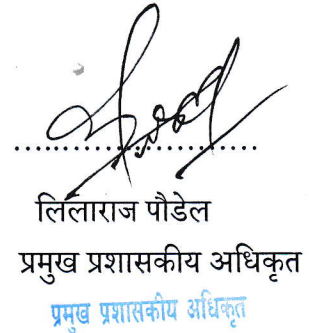 लिलाराज पौडेल
प्रमुख प्रशासकीय अधिकृत
प्रमुख प्रशासकीय अधिकृत